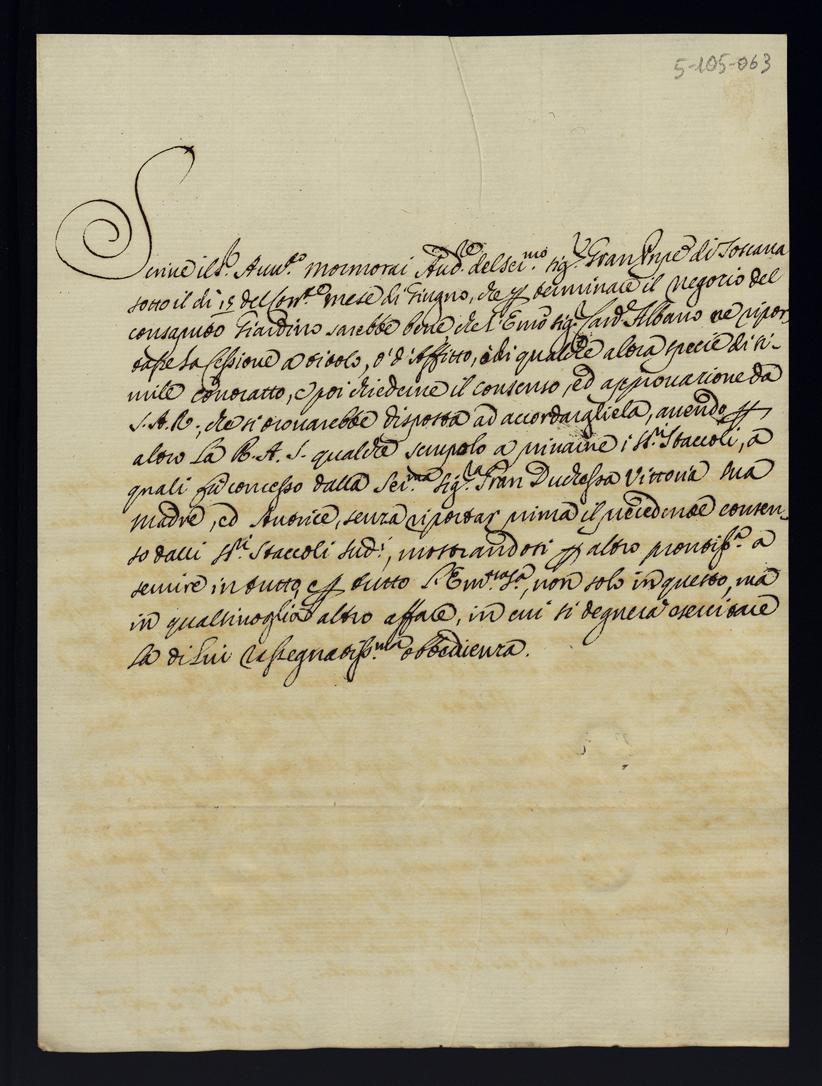 5-105-063
Scrive il Sr. Avv.to Mormorai Aud.re del Ser.mo Sig.r Gran Prpe di Toscana
sotto il di 15 del Corr.te mese di Giugno, che p terminare il negozio del
consaputo Giardino sarebbe bene che l'Emo Sig.r Card. Albano ne ripor,
tasse la Cessione a titolo, ò d'Affitto, ò di qualche altra specie di si-
mile contratto, e poi chiederne il consenso, ed approvazione da
S. A. R., che si trovarebbe disposta ad accordargliela, avendo p
altro La R. A. S. qualche scrupolo a privarne i SS.ri Staccoli, a
quali fù concesso dalla Ser.ma Sig.ra Gran Duchessa Vittoria sua
Madre, ed Autrice, senza riportar prima il precedente consen,
so dalli SS.ri Staccoli sud.i, mostrandosi p altro prontiss.a a
servire in tutto, e p tutto l'Em.za Sa, non solo in questo, mà
in qualsivoglia altro affare, in cui si degnerà esercitare
la di Lui rassegnatiss.ma obbedienza.